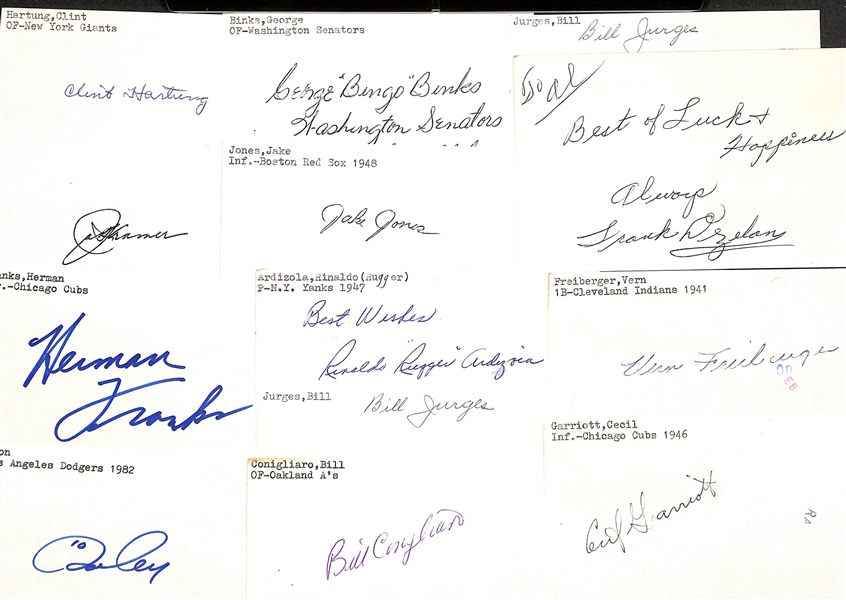 Hartung,Clint
OF-New York Giants
Clint Hartung
Binks,George
OF-Washington Senators
George "Bingo" Binks
Washington Senators
Jurges,Bill
Bill Jurges
To Al
Best of Luck +
Happiness
Always
Frank D'Zelan
Jack Kramer
Jones,Jake
Inf.-Boston Red Sox 1948
Jake Jones
nks,Herman
.-Chicago Cubs
Herman
Franks
Ardizola,Rinaldo(Rugger)
P-N.Y. Yanks 1947
Best Wishes
Rinaldo "Rugger" Ardizoia
Jurges,Bill
Bill Jurges
Freiberger,Vern
1B-Cleveland Indians 1941
Vern Freiburger
Garriott,Cecil
Inf.-Chicago Cubs 1946
Cecil Garriott
on
s Angeles Dodgers 1982
Conigliaro,Bill
OF-Oakland A's
Bill Conigliaro